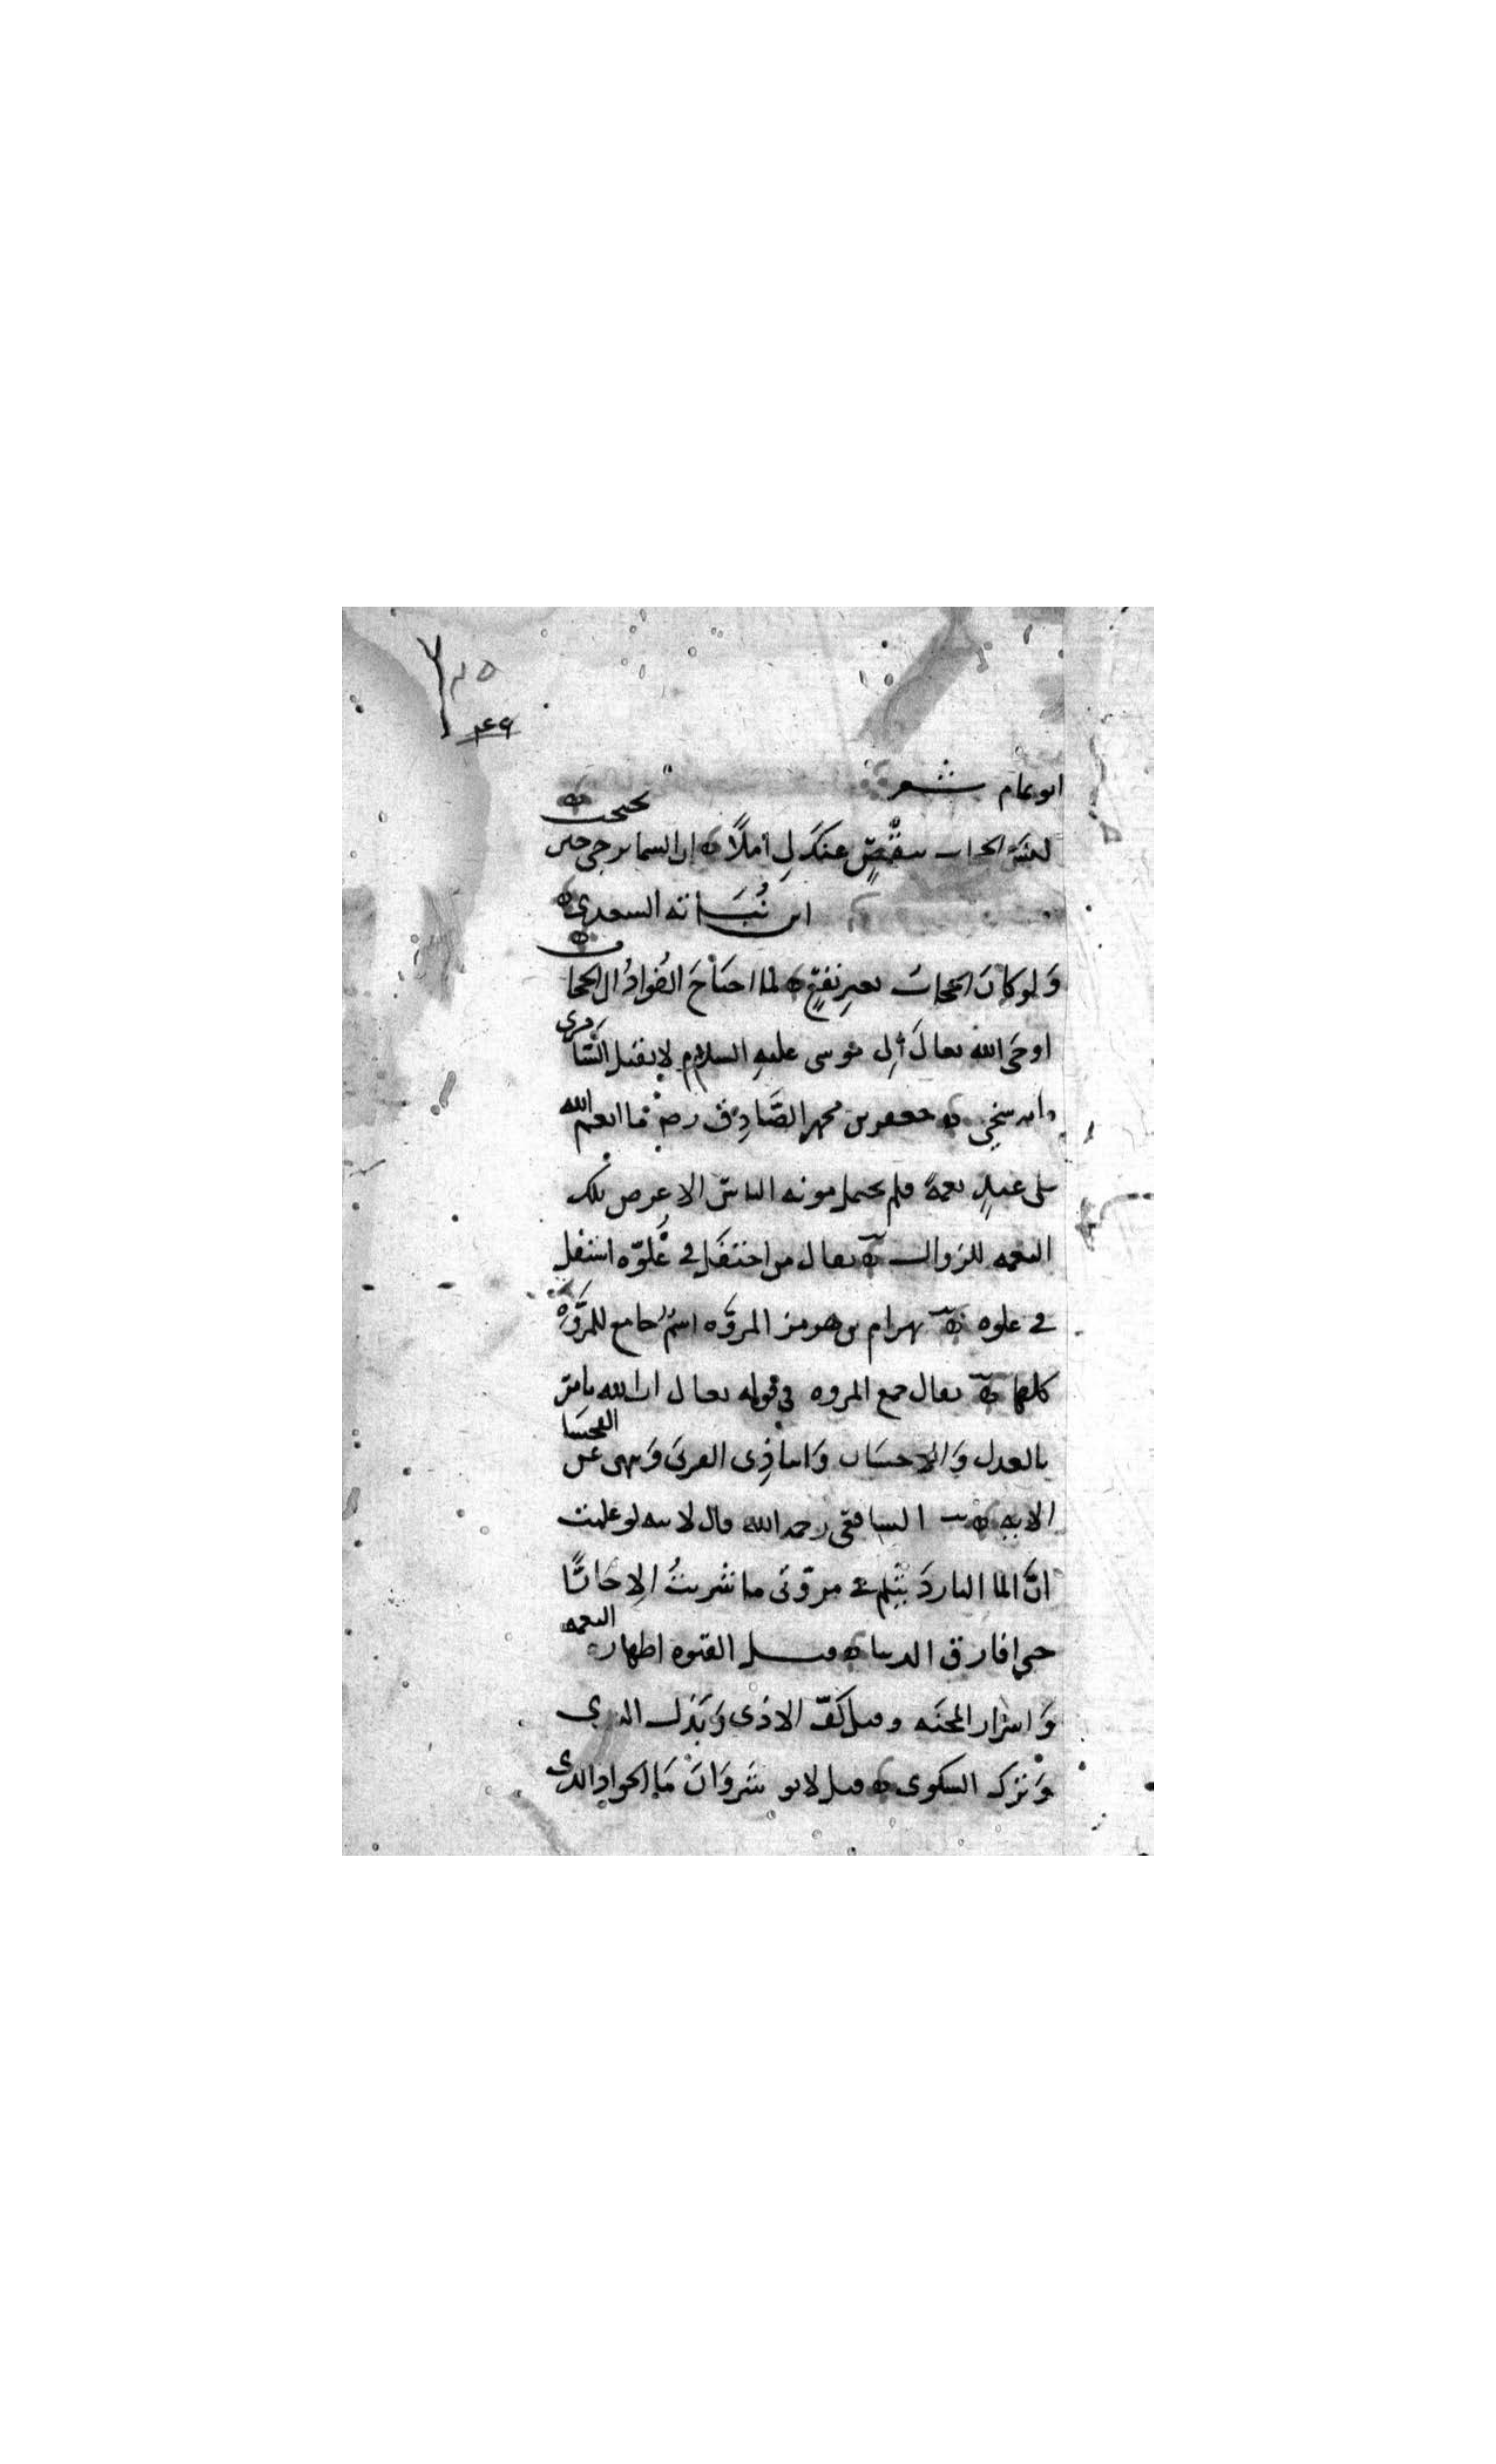 ابو تمام شعر
ليس الحجاب بمقصٍّ عنك لي املاً ان السما ترجى حين تحتجب
ابن نُباته السعدي
وَلو كانَ الحجاب بغيرِ نفعٍ لما احتاجَ الفُوادُ الى الحجاب
اوحَى الله تعالى اِلى موسى عليهِ السلام لا تقتل السَّامري
فانه سخي جعفر بن محمد الصَّادِق رضـ ما انعم الله
على عبدٍ نعمةً فلم يحتمل مونه الناس الا عرض تلك
النعمه للزوال يقال من احتفَل في عُلوّه استفل
في علوه بهرام بن هرمز المروّه اسمٌ جامع للمروّه
كلها يقال جمع المروه في قوله تعالى ان الله يامر
بالعدل وَالاحسَان وَايتا ذِى القربَى وَينهى عن الفحشا
الايه الشافعى رحمه الله قال لابنه لو علمت
انَّ الما الباردَ يثلم في مروّتى ما شربتُ الا حارًّا
حتى افارق الدنيا قيل الفتوه اظهار النعمه
وَاسْرار المحنَه وقيل كَفّ الاذى وَبَذل الندى
وَتَرْك الشكوى قيل لانو شَروَانَ مَا الجواد الذى